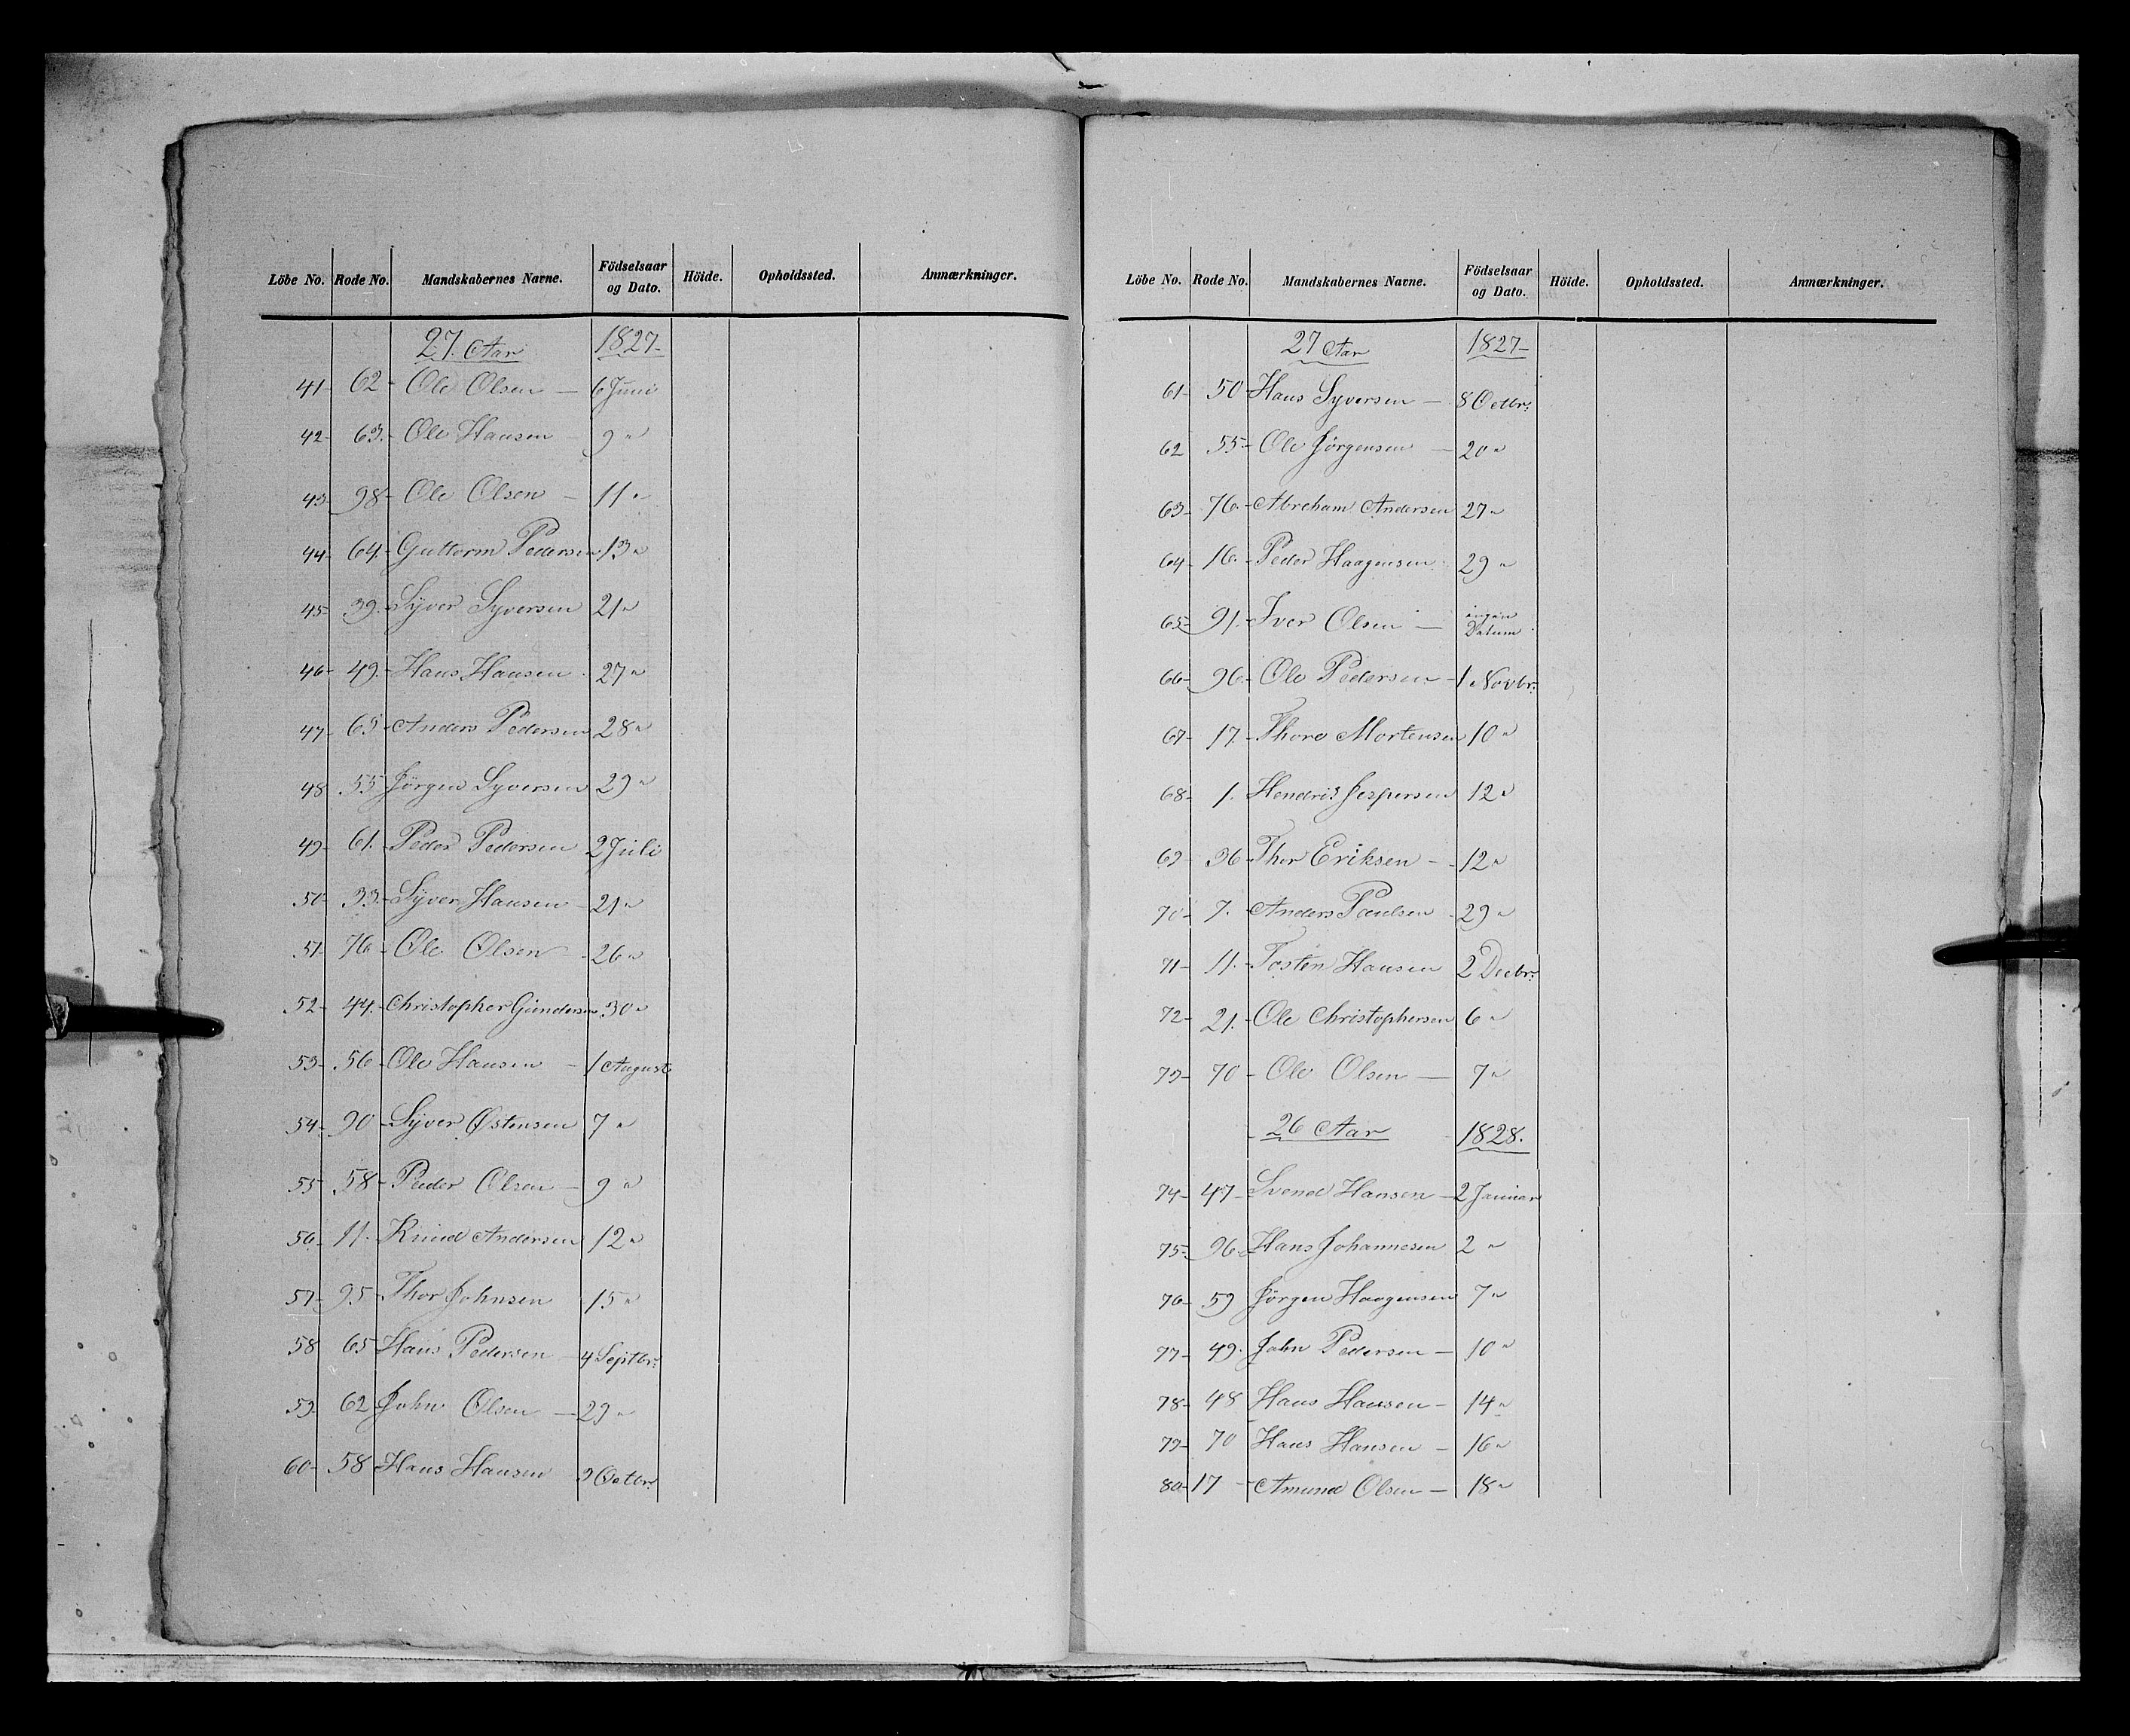 Löbe No. Rode No. Mandskabernes Navne. Födselsaar og Dato. Höide. Opholdssted. Anmærkninger.
27 Aar 1827
41 - 62 - Ole Olsen - 6 Juni
42 - 63. - Ole Hansen - 9 "
43 - 98 - Ole Olsen - 11 "
44 - 64. - Guttorm Pedersen 13 "
45 - 39. - Syver Syversen 21 "
46 - 49. - Hans Hansen - 27 "
47 - 65 - Anders Pedersen 28 "
48 55 Jörgen Syversen 29 "
49 - 61. - Peder Pedersen 2 Juli
50 - 33. - Syver Hansen - 21 "
51 - 76 - Ole Olsen - 26 "
52 - 44. - Christopher Gundersen 30 "
53 - 56 - Ole Hansen - 1 August
54 - 90 - Syver Østensen 7 "
55 - 58 - Peder Olsen - 9 "
56 - 11. - Knud Andersen 12 "
57 - 95 - Thor Johnsen 15 "
58 65 Hans Pedersen - 4 Septbr.
59 - 62 John Olsen - 29 "
60 - 58 Hans Hansen 2 Octbr.
Löbe No. Rode No. Mandskabernes Navne. Födselsaar og Dato. Höide. Opholdssted. Anmærkninger.
27 Aar 1827
61 - 50 - Hans Syversen - 8 Octbr.
62 55 - Ole Jörgensen - 20 "
63 - 76. - Abreham Andersen 27 "
64 - 16. - Peder Haagensen 29 "
65 - 91. - Iver Olsen - ingen Datum
66 - 96. - Ole Pedersen - 1 Novbr.
67 - 17. - Thore Mortensen 10 "
68 - 1. Hendrik Jespersen 12 "
69 - 36 - Thor Eriksen - 12 "
70 - 7. - Anders Paulsen - 29 "
71 - 11. - Tosten Hansen 2 Decbr.
72 - 21. - Ole Christophersen 6 "
73 - 70 - Ole Olsen - 7 "
26 Aar 1828.
74 - 47 - Svend Hansen - 2 Januar
75 - 96 - Hans Johannesen 2 "
76 - 59 Jörgen Haagensen 7 "
77 - 49. John Pedersen - 10 "
78 - 48 Hans Hansen - 14 "
79 - 70 Hans Hansen - 16 "
80 - 17 - Amund Olsen - 18 "